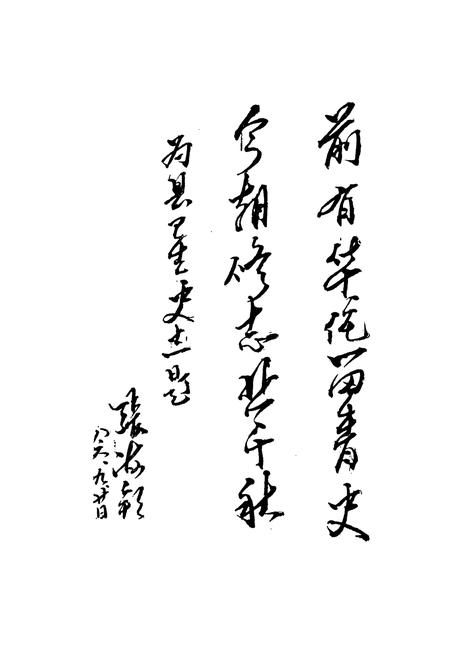 前有华佗留青史
今朝修志千秋
为县卫生史志题
张
八六、九、廿日